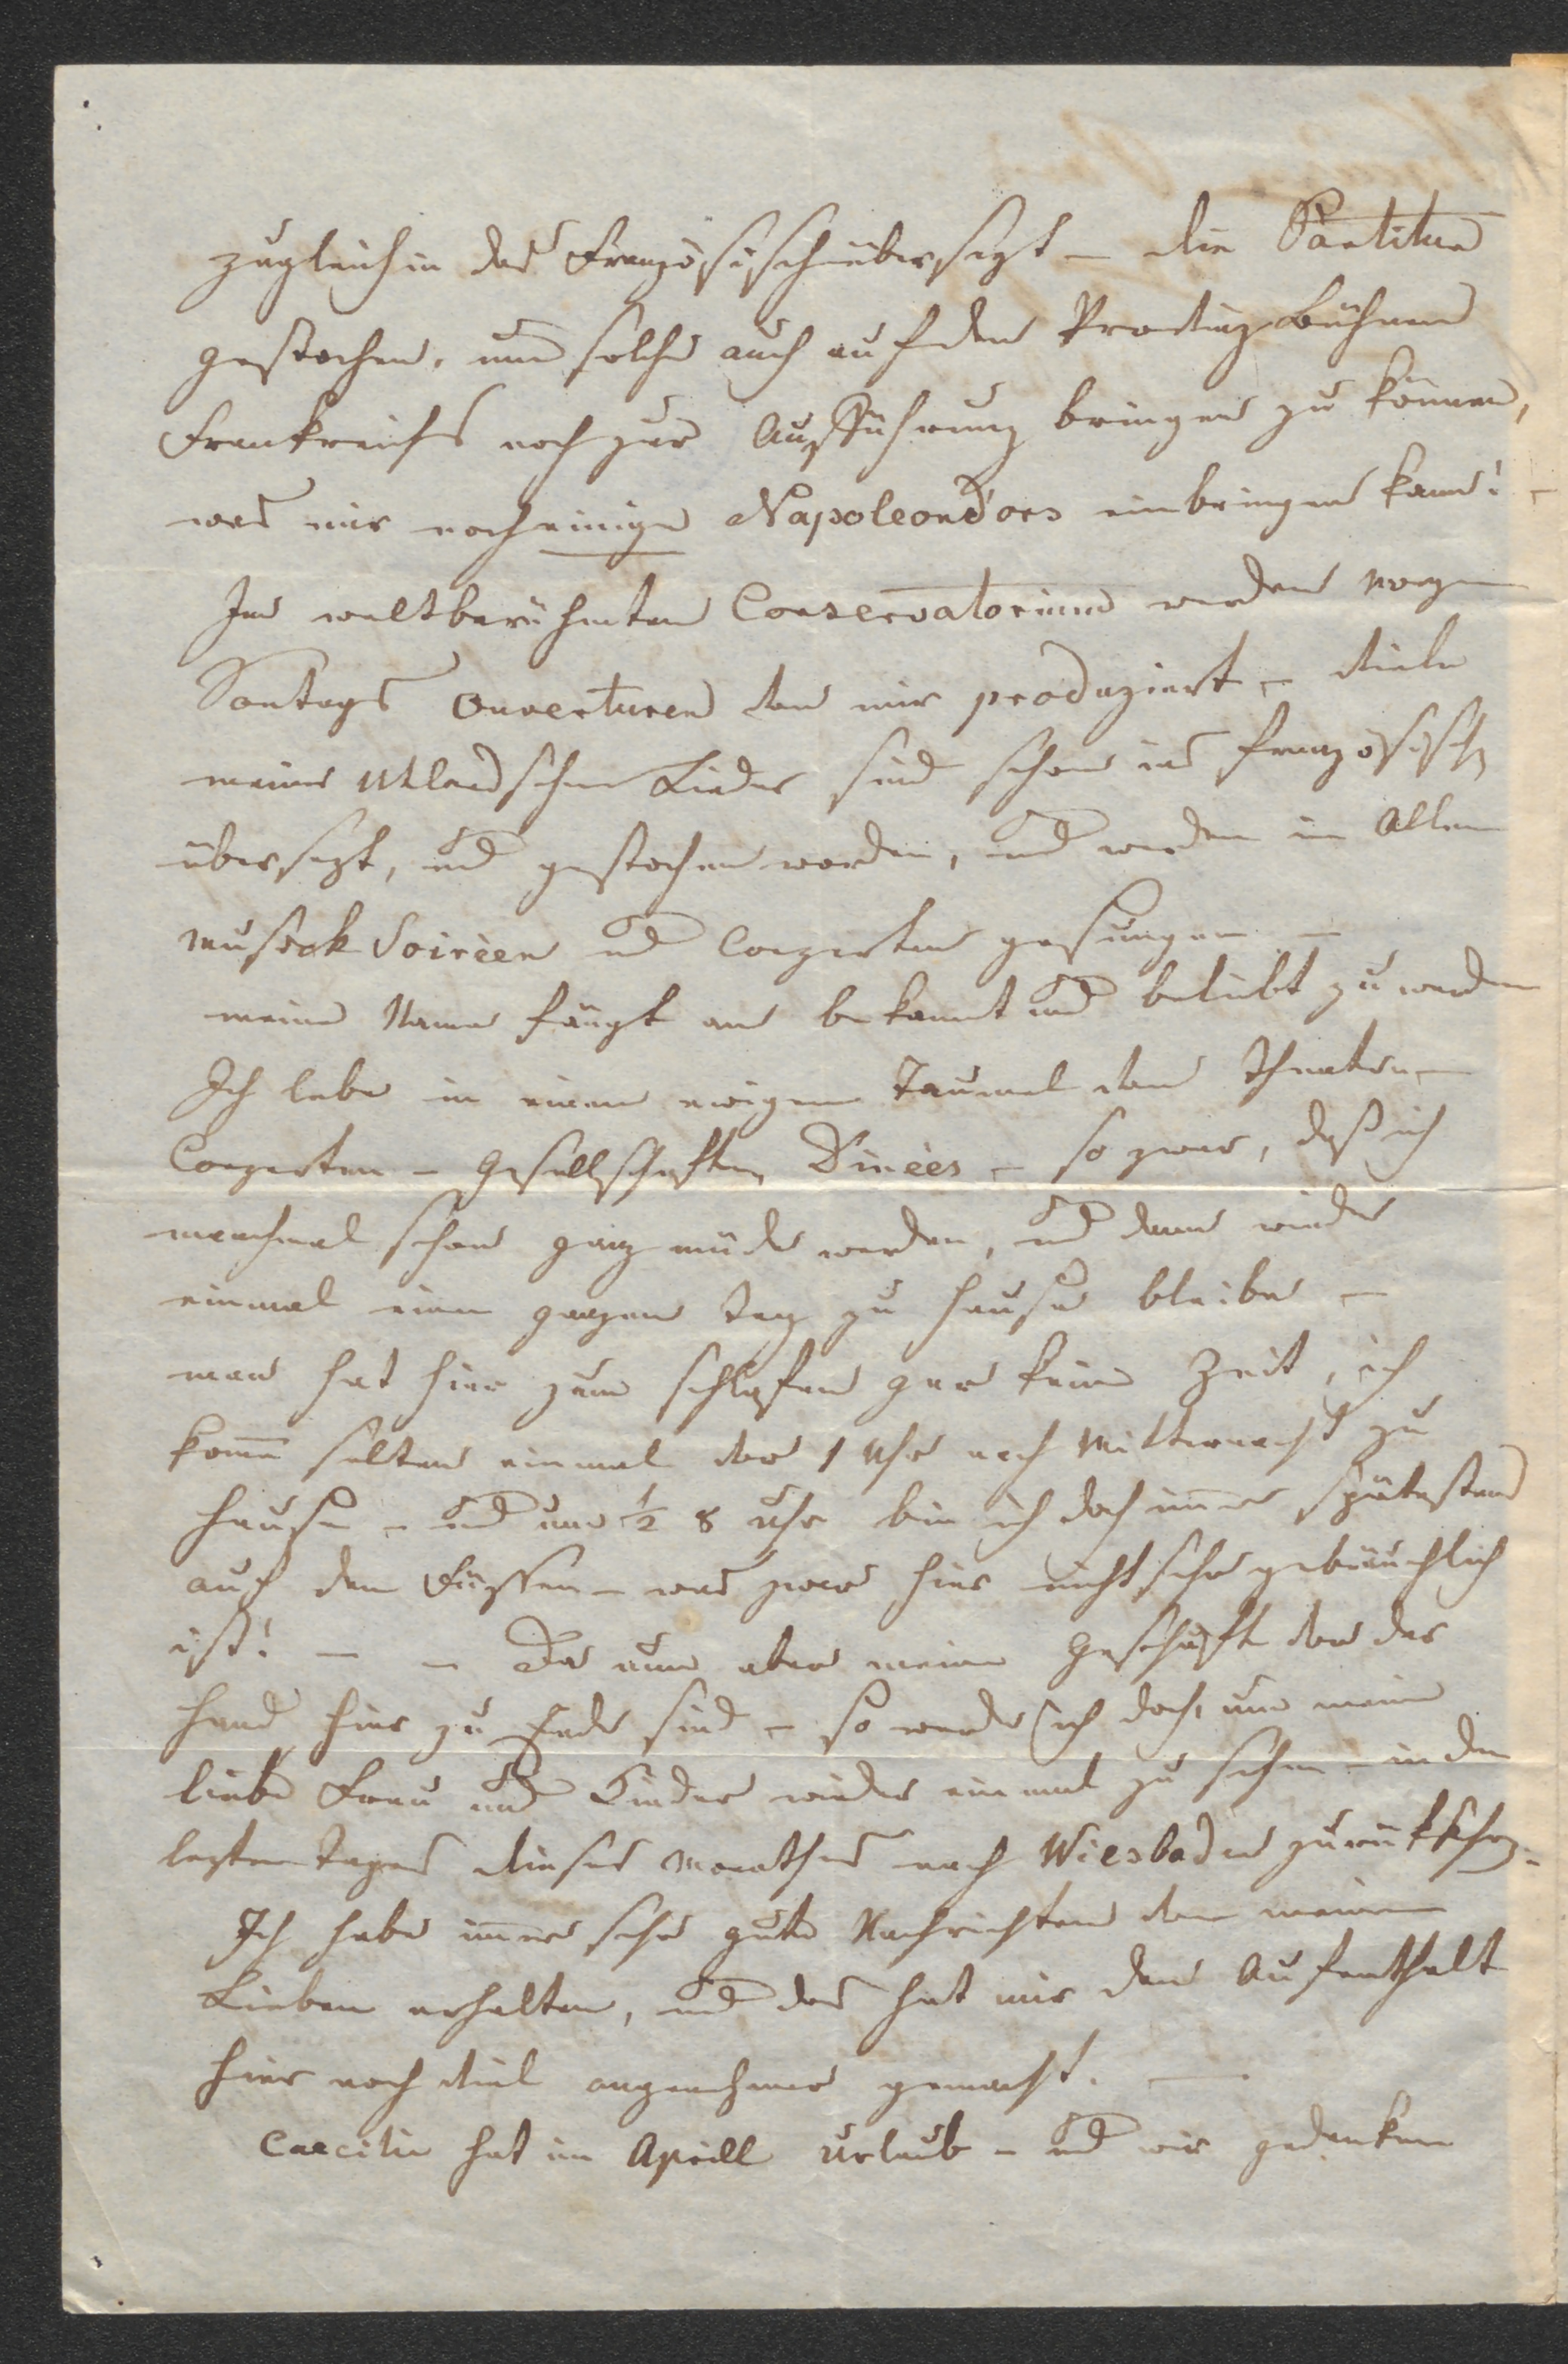 zugleich in das Französisch übersezt – die Partitur
gestochen, um solche auch auf den Provinz Bühnen
Frankreichs noch zur Aufführung bringen zu können,
was mir noch einige Napoleond'ors einbringen kann! –
Im weltberühmten Conservatorium werden morgen
Sontags Ouverturen von mir produziert – viele
meiner Uhlandschen Lieder sind schon ins französisch
übersezt, und gestochen worden, und werden in allen
Musick Soirèen und Conzerten gesungen –
mein Name fängt an bekannt und beliebt zu werden
Ich lebe in einem ewigen Taumel von Theatern –
Conzerten – Gesellschaften, Dinèes – so zwar, daß ich
manchmal schon ganz müde werden, und dann wieder
einmal einen ganzen Tag zu Hause bleibe –
man hat hier zum schlafen gar keine Zeit, ich
komme selten einmal vor 1 Uhr nach Mitternacht zu
Hause – und um ½ 8 Uhr bin ich doch immer spätestens
auf den Füssen – was zwar hier nicht sehr gebräuchlich
ist! – – Da nun aber meine Geschäfte vor der
Hand hier zu Ende sind – so werde ich doch, um meine
liebe Frau und Kinder wieder einmal zu sehen – in den
lezten Tagen dieses Monathes nach Wiesbaden zurükkehren.
Ich habe immer sehr gute Nachrichten von meinen
Lieben erhalten, und das hat mir den Aufenthalt
hier noch viel angenehmer gemacht. –
Caecilie hat im Aprill Urlaub – und wir gedenken